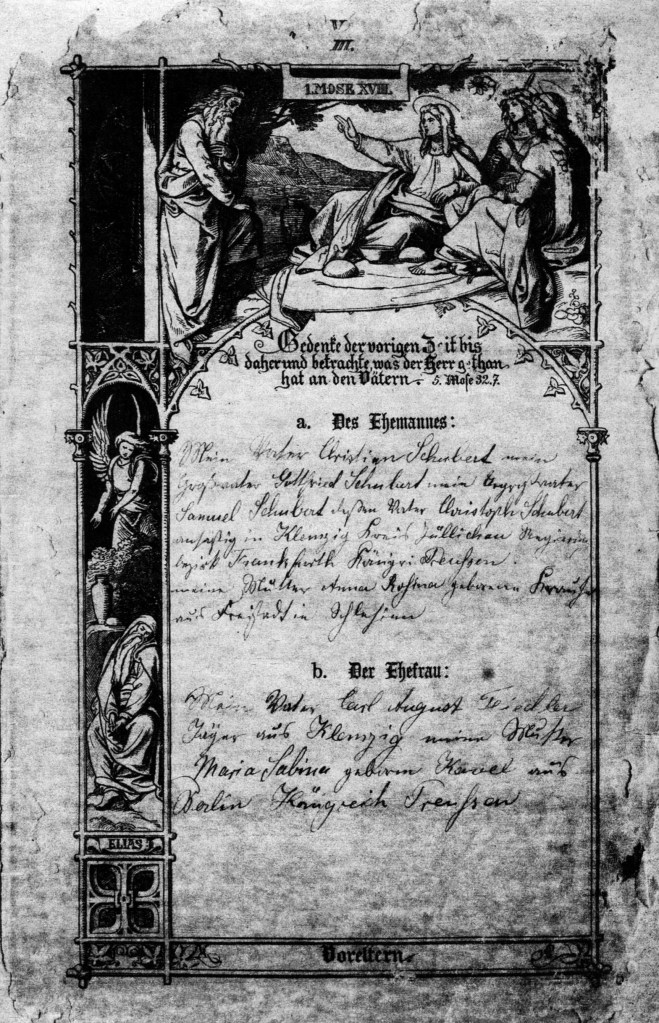 V
III.
1. MOSE XVIII.
Gedenke der vorigen Zeit bis
daher und betrachte, was der Herr gethan
hat an den Vätern. 5. Mose 32.7.
a. Des Ehemannes:
Mein Vater Christian Schubert mein
Großvater Gottfried Schubert mein
Samuel Schubert deßen Vater Christoph Schubert
ansäßig in Klemzig Kreis Züllichau
bezirk Preussen.
meine Mutter Anna Rosina geborene
aus Freistadt in Schlesien
b. Der Ehefrau:
Mein Vater Carl August Fiedler
Jäger aus Klemzig meine Mutter
Maria Sabina geborn Kavel aus
Berlin Köngreich Preussen
ELIAS
Voreltern.